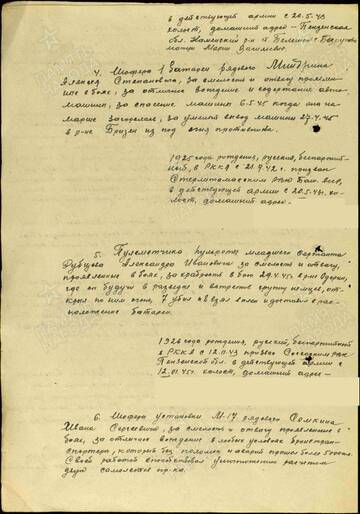 в действующей армии с 20.5.43
холост, домашний адрес - Пензенская
обл. Каменский р-н
мать Мария Васильевна.
4. Шофера 1 батареи рядового Митрина
Алексея Степановича, за смелость и отвагу проявлен-
ные в боях, за отличное вождение и содержание авто-
машины, за спасение машины 6.5.45 когда она на
марше загорелась, за умелый вывод машины 27.4.45
в р-не Бризен из под огня противника.
1925 года рождения, русский, беспартий-
ный, в РККА с 21.9.42 г. призван
Стерлитамакским РВК Баш. ССР,
в действующей армии с 20.5.43г. хо-
лост, домашний адрес -
5. Пулеметчика пульроты младшего сержанта
Рубцова Александра Ивановича за смелость и отвагу,
проявленные в боях, за храбрость в бою 29.4.45г. в р-не
где он будучи в разведке и встретив группу немцев, от-
крыл по ним огонь, 7 убил и взял в плен и доставил в рас-
положение батареи.
1926 года рождения, русский, беспартийный
в РККА с 12.11.43 призван РВК
Пензенской обл. в действующей армии с
12.01.45г. холост, домашний адрес -
6. Шофера установки М-17 рядового Сомкина
Ивана Сергеевича, за смелость и отвагу проявленные в
боях, за отличное вождение в любых условиях бронетран-
спортера, который без поломок и аварий прошел более 5000 км.
Своей работой способствовал уничтожению расчетом
двух самолетов пр-ка.